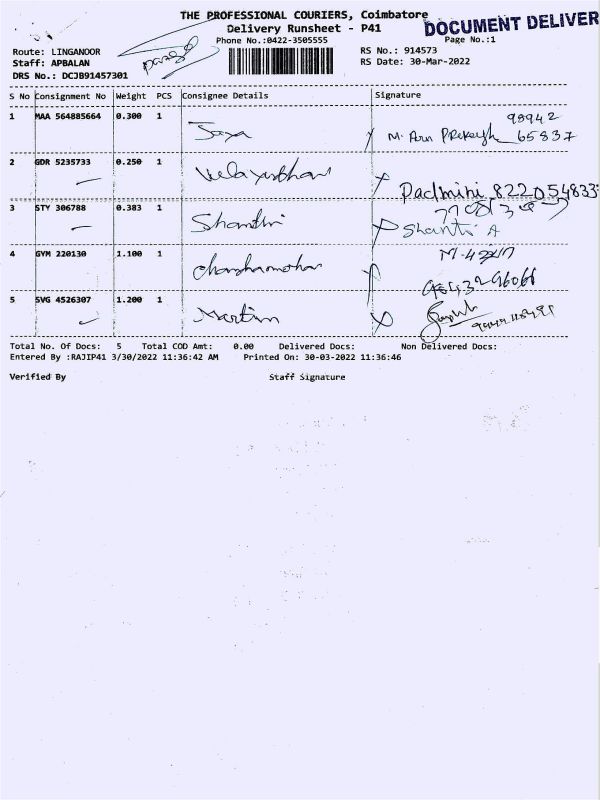 THE PROFESSIONAL COURIERS, Coimbatore
DOCUMENT DELIVER
Delivery Runsheet - P41
Phone No.:0422-3505555
Page No.:1
Route: LINGANOOR
RS No.: 914573
Staff: APBALAN
RS Date: 30-Mar-2022
DRS No.: DCJB91457301
S No Consignment No Weight PCS Consignee Details Signature
1 MAA 564885664 0.300 1 Jaya 99942
M. Arun PRakash 65837
2 GDR 5235733 0.250 1 Velayudhan
Padmini 822054833
3 STY 306788 0.383 1 Shanthi
Shanti A
4 GYM 220130 1.100 1 Chandramohan
5 SVG 4526307 1.200 1 Martin
Total No. Of Docs: 5 Total COD Amt: 0.00 Delivered Docs: Non Delivered Docs:
Entered By :RAJIP41 3/30/2022 11:36:42 AM Printed On: 30-03-2022 11:36:46
Verified By Staff Signature